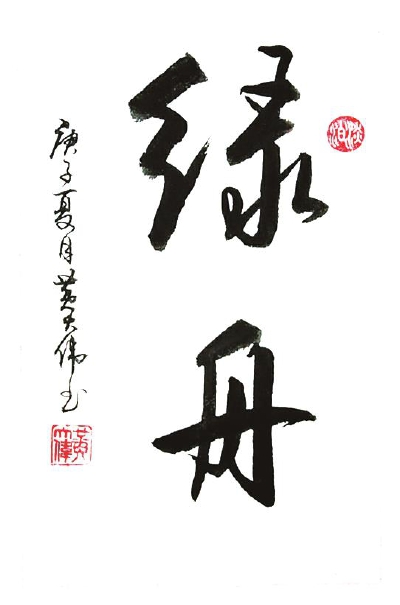 绿舟
庚子夏月黄大伟书